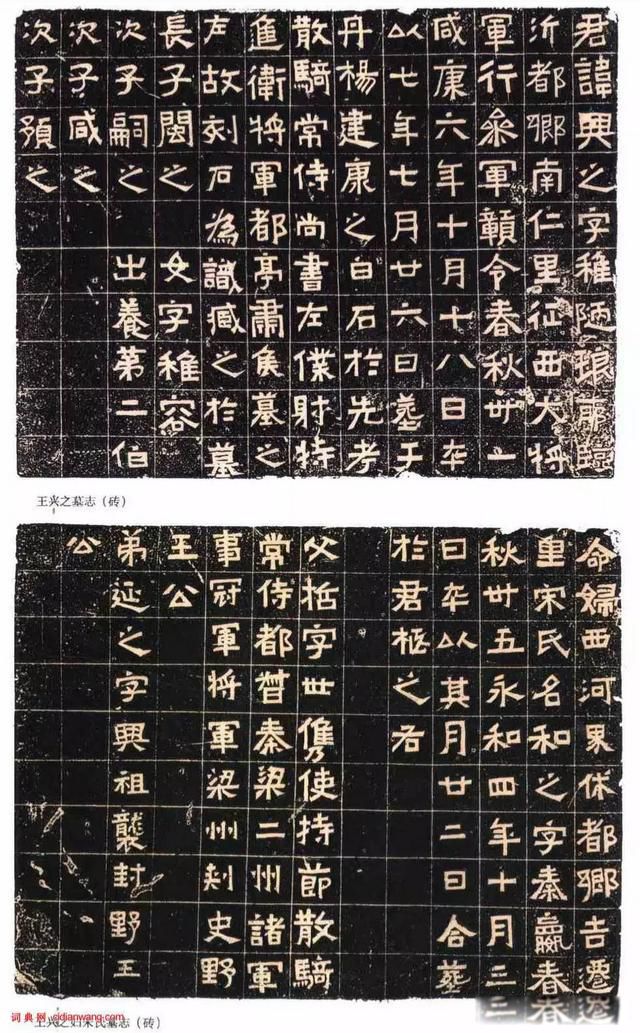 君諱興之字稚陋琅耶臨
沂都鄉南仁里征西大將
軍行參軍贛令春秋卅一
咸康六年十月十八日卒
以七年七月廿六日葬于
丹楊建康之白石於先考
散騎常侍尚書左僕射特
進衛將軍都亭肅侯墓之
左故刻石為識臧之於墓
長子閩之 女字稚容
次子嗣之 出養第二伯
次子咸之
次子預之
王兴之墓志（砖）
命婦西河界休都鄉吉遷
里宋氏名和之字秦嬴春
秋卅五永和四年十月三
日卒以其月廿二日合葬
於君柩之右
父哲字世儁使持節散騎
常侍都督秦梁二州諸軍
事冠軍將軍梁州刺史野
王公
弟延之字興祖襲封野王
公
王兴之妇宋氏墓志（砖）
词典网：cidianwang.com